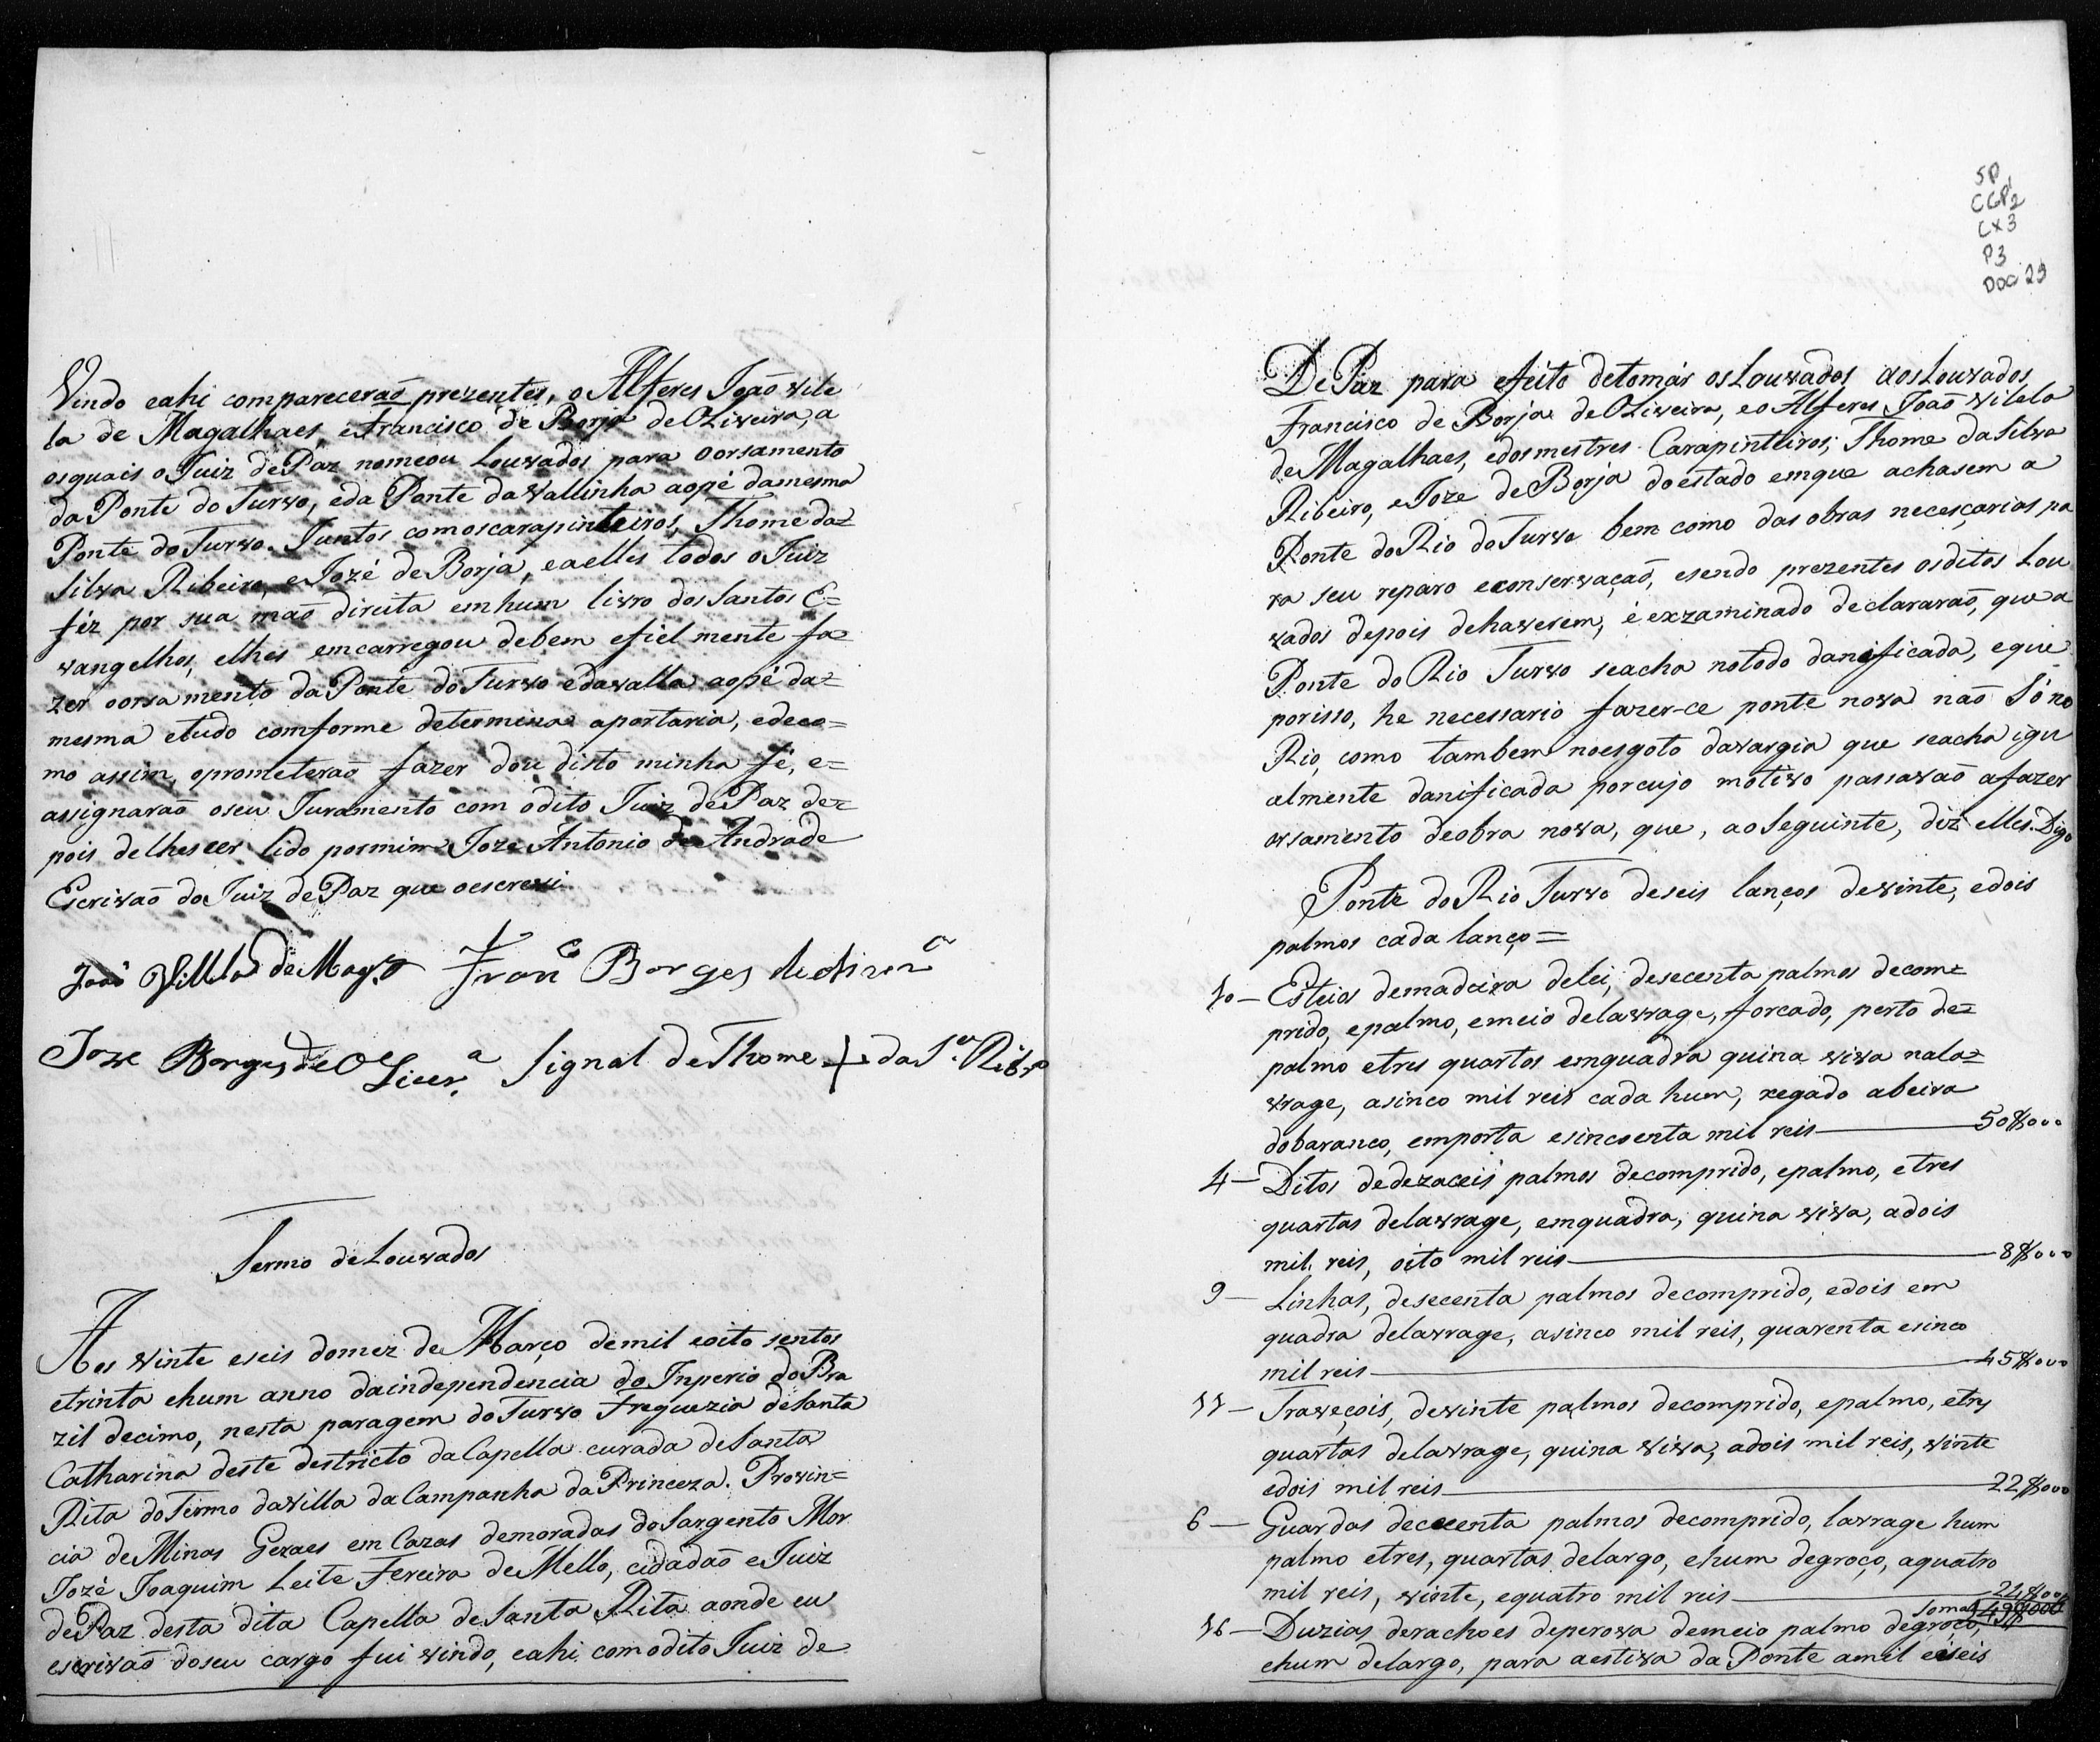 Vindo eahi comparecerão prezentes, o Alferes João Vile
la de Magalhaes, eFrancisco de Borja deOLiveira, a
osquais oJuiz dePaz nomeou Louvados para oorsamento
da Ponte do Turvo, eda Ponte daVallinha aopé damesma
Ponte doTurvo. Juntos comoscarapinteiros, Thome da=
Silva Ribeiro, eJozé deBorja, eaelles todos oJuiz
féz por sua mão direita emhum livro dosSantos E=
vangelhos, elhes emcarregou debem efiel mente fa=
zer oorsamento daPonte doTurvo edavalla aopé da=
mesma etudo comforme determina aportaria, edeco=
mo assim, oprometerão fazer dou disto minha fé, e=
assignarão oseu Juramento com odito Juiz dePaz de=
pois delhescer lido pormim Joze Antonio de Andrade
Escrivão do Juiz dePaz que oescrevi
João Villela de Mag.s Fran.co Borges de Olivr.a
Joze Borges de OLiver.a Signal deThome + da S.a Ribr.o
Termo deLouvados
Aos vinte eseis domez de Março demil eoito sentos
etrinta ehum anno daindependencia do Inperio doBra
zil decimo, nesta paragem doTurvo Freguezia deSanta
Catharina deste destricto daCapella curada deSanta
Rita doTermo daVilla daCampanha daPrinceza. Provin=
cia deMinas Geraes em Cazas demoradas doSargento Mor
Jozé Joaquim Leite Fereira deMello, cidadão eJuiz
dePaz desta dita Capella deSanta Rita aonde eu
escrivão doseu cargo fui vindo, eahi comodito Juiz de
SP
CGP2
CX3
P3
DOC 29
DePaz para efeito detomár osLouvados aosLouvados
Francisco de Borja deOLiveira, eo Alferes João Vilela
deMagalhaes, edosmestres Carapinteiros, Thome daSilva
Ribeiro, eJoze deBorja doestado emque achasem a
Ponte doRio doTurvo bem como das obras necesçarias pa
ra seu reparo econservação, esendo prezentes osditos Lou
vados depois dehaverem, é exzaminado declararão, que a
Ponte do Rio Turvo seacha notodo danificada, eque
porisso, he necessario fazer-ce ponte nova não Só no
Rio, como tambem noesgoto davargia que seacha igu
almente danificada porcujo motivo passavão afazer
orsamento deobra nova, que, aoSeguinte, diz elles. Digo
Ponte doRio Turvo deseis lanços devinte, edois
palmos cada lanço=
10— Esteios demadeira delei, desecenta palmos decom=
prido, epalmo, emeio delavrage, forcado, perto de=
palmo etres quartos emquadra quina viva nala=
vrage, asinco mil reis cada hum, regado abeira
dobaranco, emporta esincoenta mil reis—50$000
4— Ditos dedezaceis palmos decomprido, epalmo, etres
quartas delavrage, emquadra, quina viva, adois
mil reis, oito mil reis—8$000
9— Linhas, desecenta palmos decomprido, edois em
quadra delavrage, asinco mil reis, quarenta esinco
mil reis—45$000
11— Traveçois, devinte palmos decomprido, epalmo, etrs
quartas delavrage, quina viva, adois mil reis, vinte
edois mil reis—22$000
6— Guardas deceenta palmos decomprido, lavrage hum
palmo etres, quartas delargo, ehum degroço, aquatro
mil reis, vinte, equatro mil reis—24$000
Soma 149$000
16— Duzias derachoes deperova demeio palmo degroço,
ehum delargo, para aestiva da Ponte amil eiseis